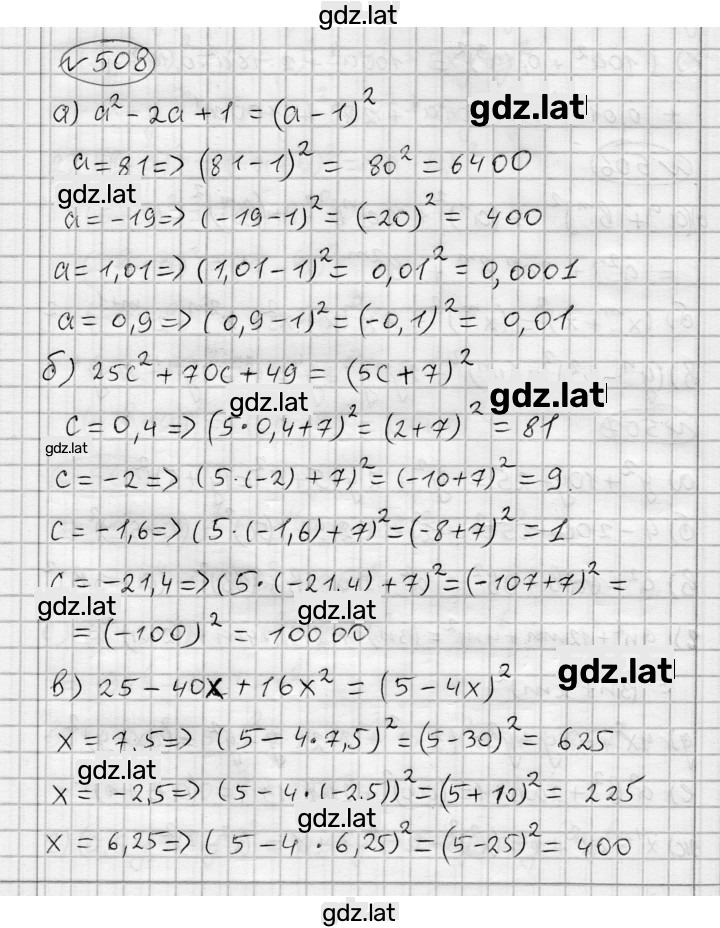 gdz.lat
№508
а) a² - 2a + 1 = (a - 1)²
gdz.lat
a = 81 => (81-1)² = 80² = 6400
gdz.lat
a = -19 => (-19-1)² = (-20)² = 400
a = 1,01 => (1,01-1)² = 0,01² = 0,0001
a = 0,9 => (0,9-1)² = (-0,1)² = 0,01
б) 25c² + 70c + 49 = (5c + 7)²
gdz.lat gdz.lat
c = 0,4 => (5·0,4+7)² = (2+7)² = 81
gdz.lat
c = -2 => (5·(-2) + 7)² = (-10+7)² = 9
c = -1,6 => (5·(-1,6) + 7)² = (-8+7)² = 1
c = -21,4 => (5·(-21.4) + 7)² = (-107+7)² =
gdz.lat gdz.lat
= (-100)² = 10000
gdz.lat
в) 25 - 40x + 16x² = (5 - 4x)²
x = 7.5 => (5 - 4·7,5)² = (5-30)² = 625
gdz.lat
x = -2,5 => (5 - 4·(-2.5))² = (5+10)² = 225
gdz.lat
x = 6,25 => (5 - 4·6,25)² = (5-25)² = 400
gdz.lat